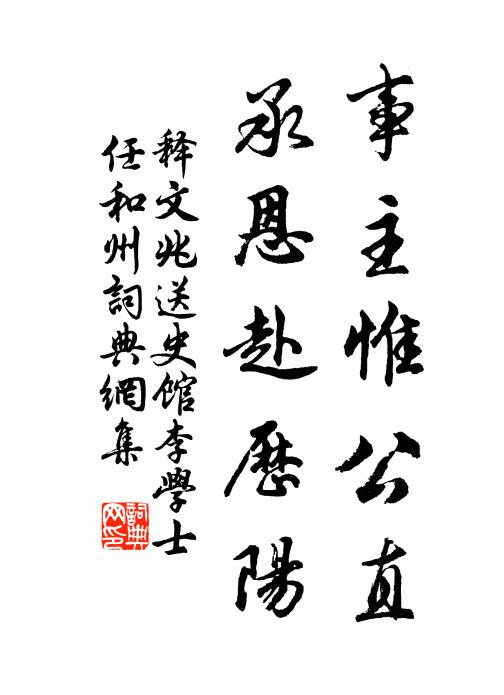 事主惟公直
承恩赴歷陽
释文兆送史館李學士
任和州詞典網集
詞典
网印